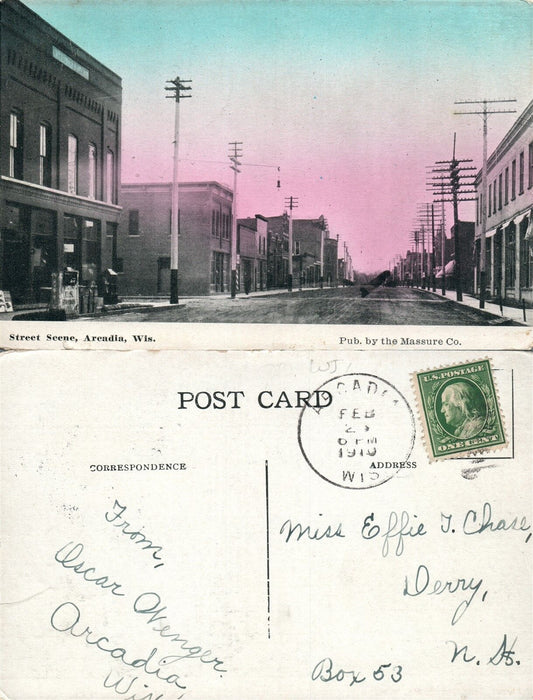 Street Scene, Arcadia, Wis.
Pub. by the Massure Co.
POST CARD
ARCADIA
FEB
6 PM
1910
WIS
U.S. POSTAGE
ONE CENT
CORRESPONDENCE
ADDRESS
From,
Oscar Wenger.
Arcadia
Wis.
Miss Effie T. Chase,
Derry,
N. H.
Box 53